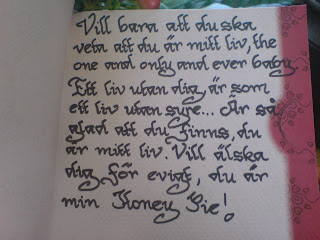 Vill bara att du ska
veta att du är mitt liv, the
one and only and ever baby.
Ett liv utan dig är som
ett liv utan syre... Är så
glad att du finns, du
är mitt liv. Vill älska
dig för evigt, du är
min Honey Gie!